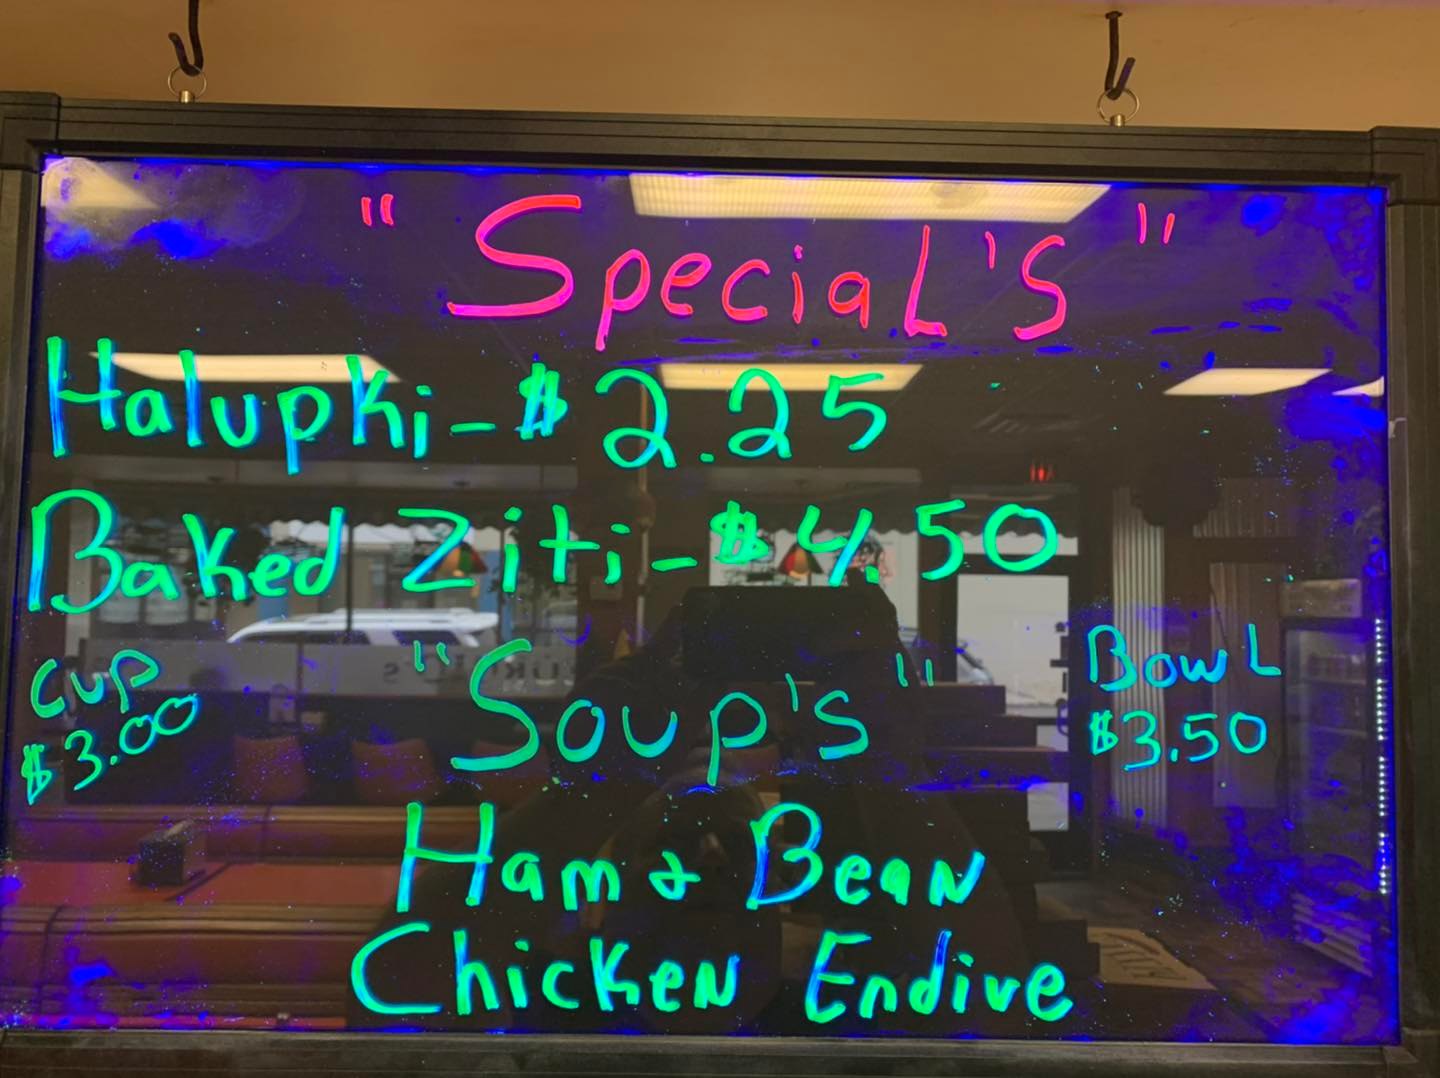 "Special's"
Halupki - $2.25
Baked Ziti - $4.50
Cup
$3.00
"Soup's"
Bowl
$3.50
Ham & Bean
Chicken Endive